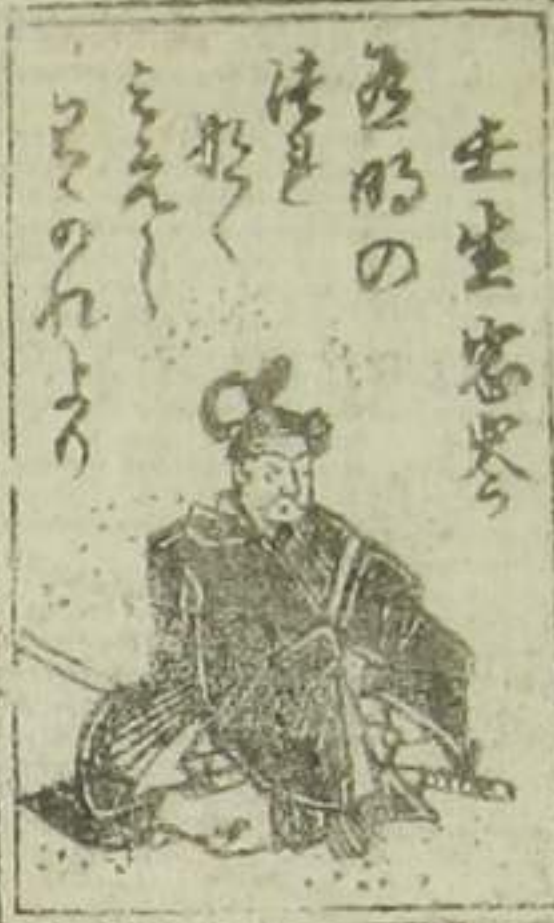 壬生忠岑
有明の
つれ
なく
みえし
わかれより